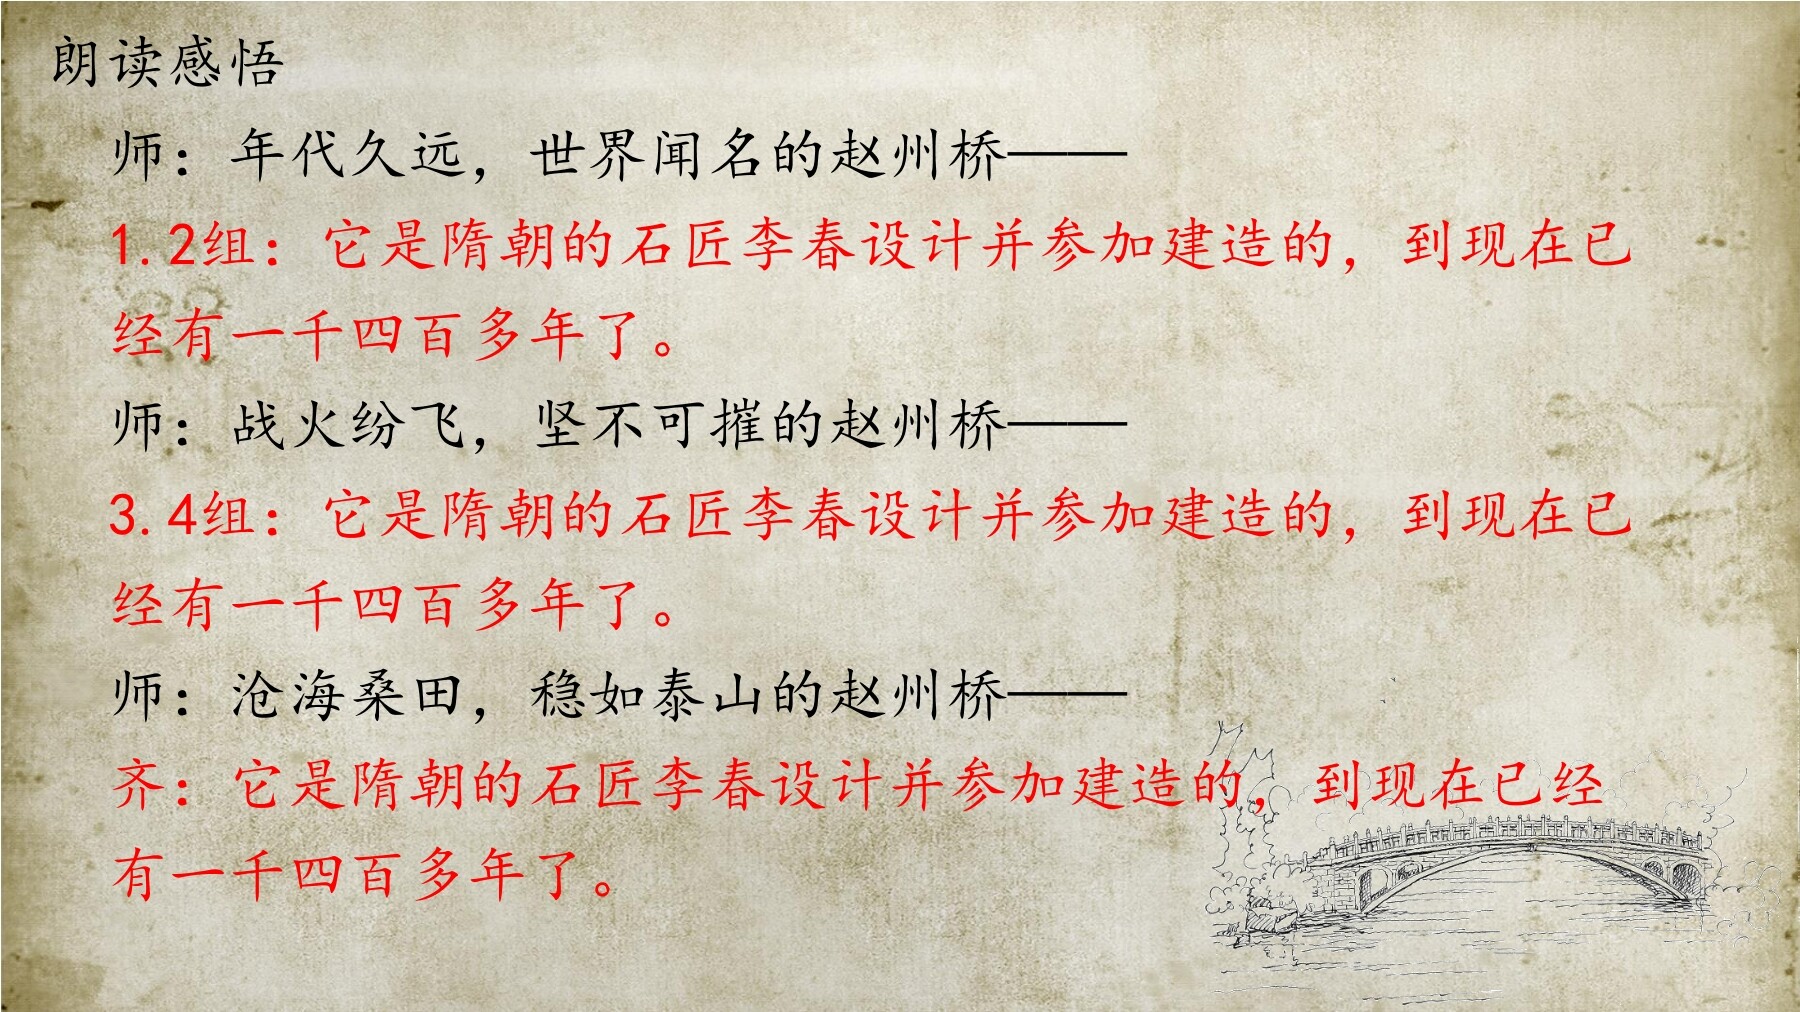 朗读感悟
师：年代久远，世界闻名的赵州桥——
1.2组：它是隋朝的石匠李春设计并参加建造的，到现在已
经有一千四百多年了。
师：战火纷飞，坚不可摧的赵州桥——
3.4组：它是隋朝的石匠李春设计并参加建造的，到现在已
经有一千四百多年了。
师：沧海桑田，稳如泰山的赵州桥——
齐：它是隋朝的石匠李春设计并参加建造的，到现在已经
有一千四百多年了。